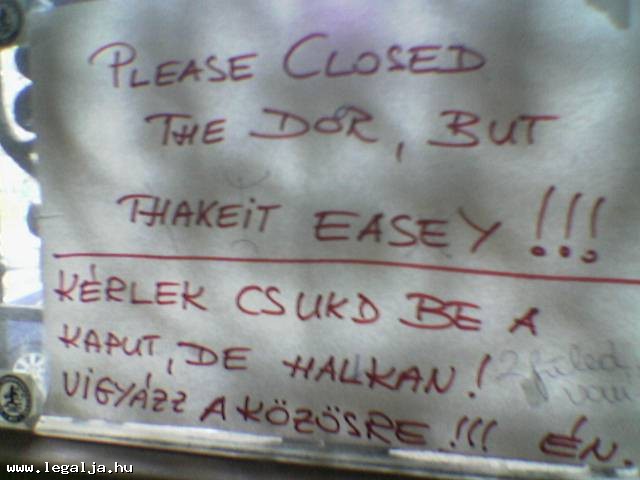 PLEASE CLOSED
THE DOR, BUT
THAKEIT EASEY !!!
KÉRLEK CSUKD BE A
KAPUT, DE HALKAN!
2 füled
van
VIGYÁZZ A KÖZÖSRE!!! ÉN.
www.legalja.hu